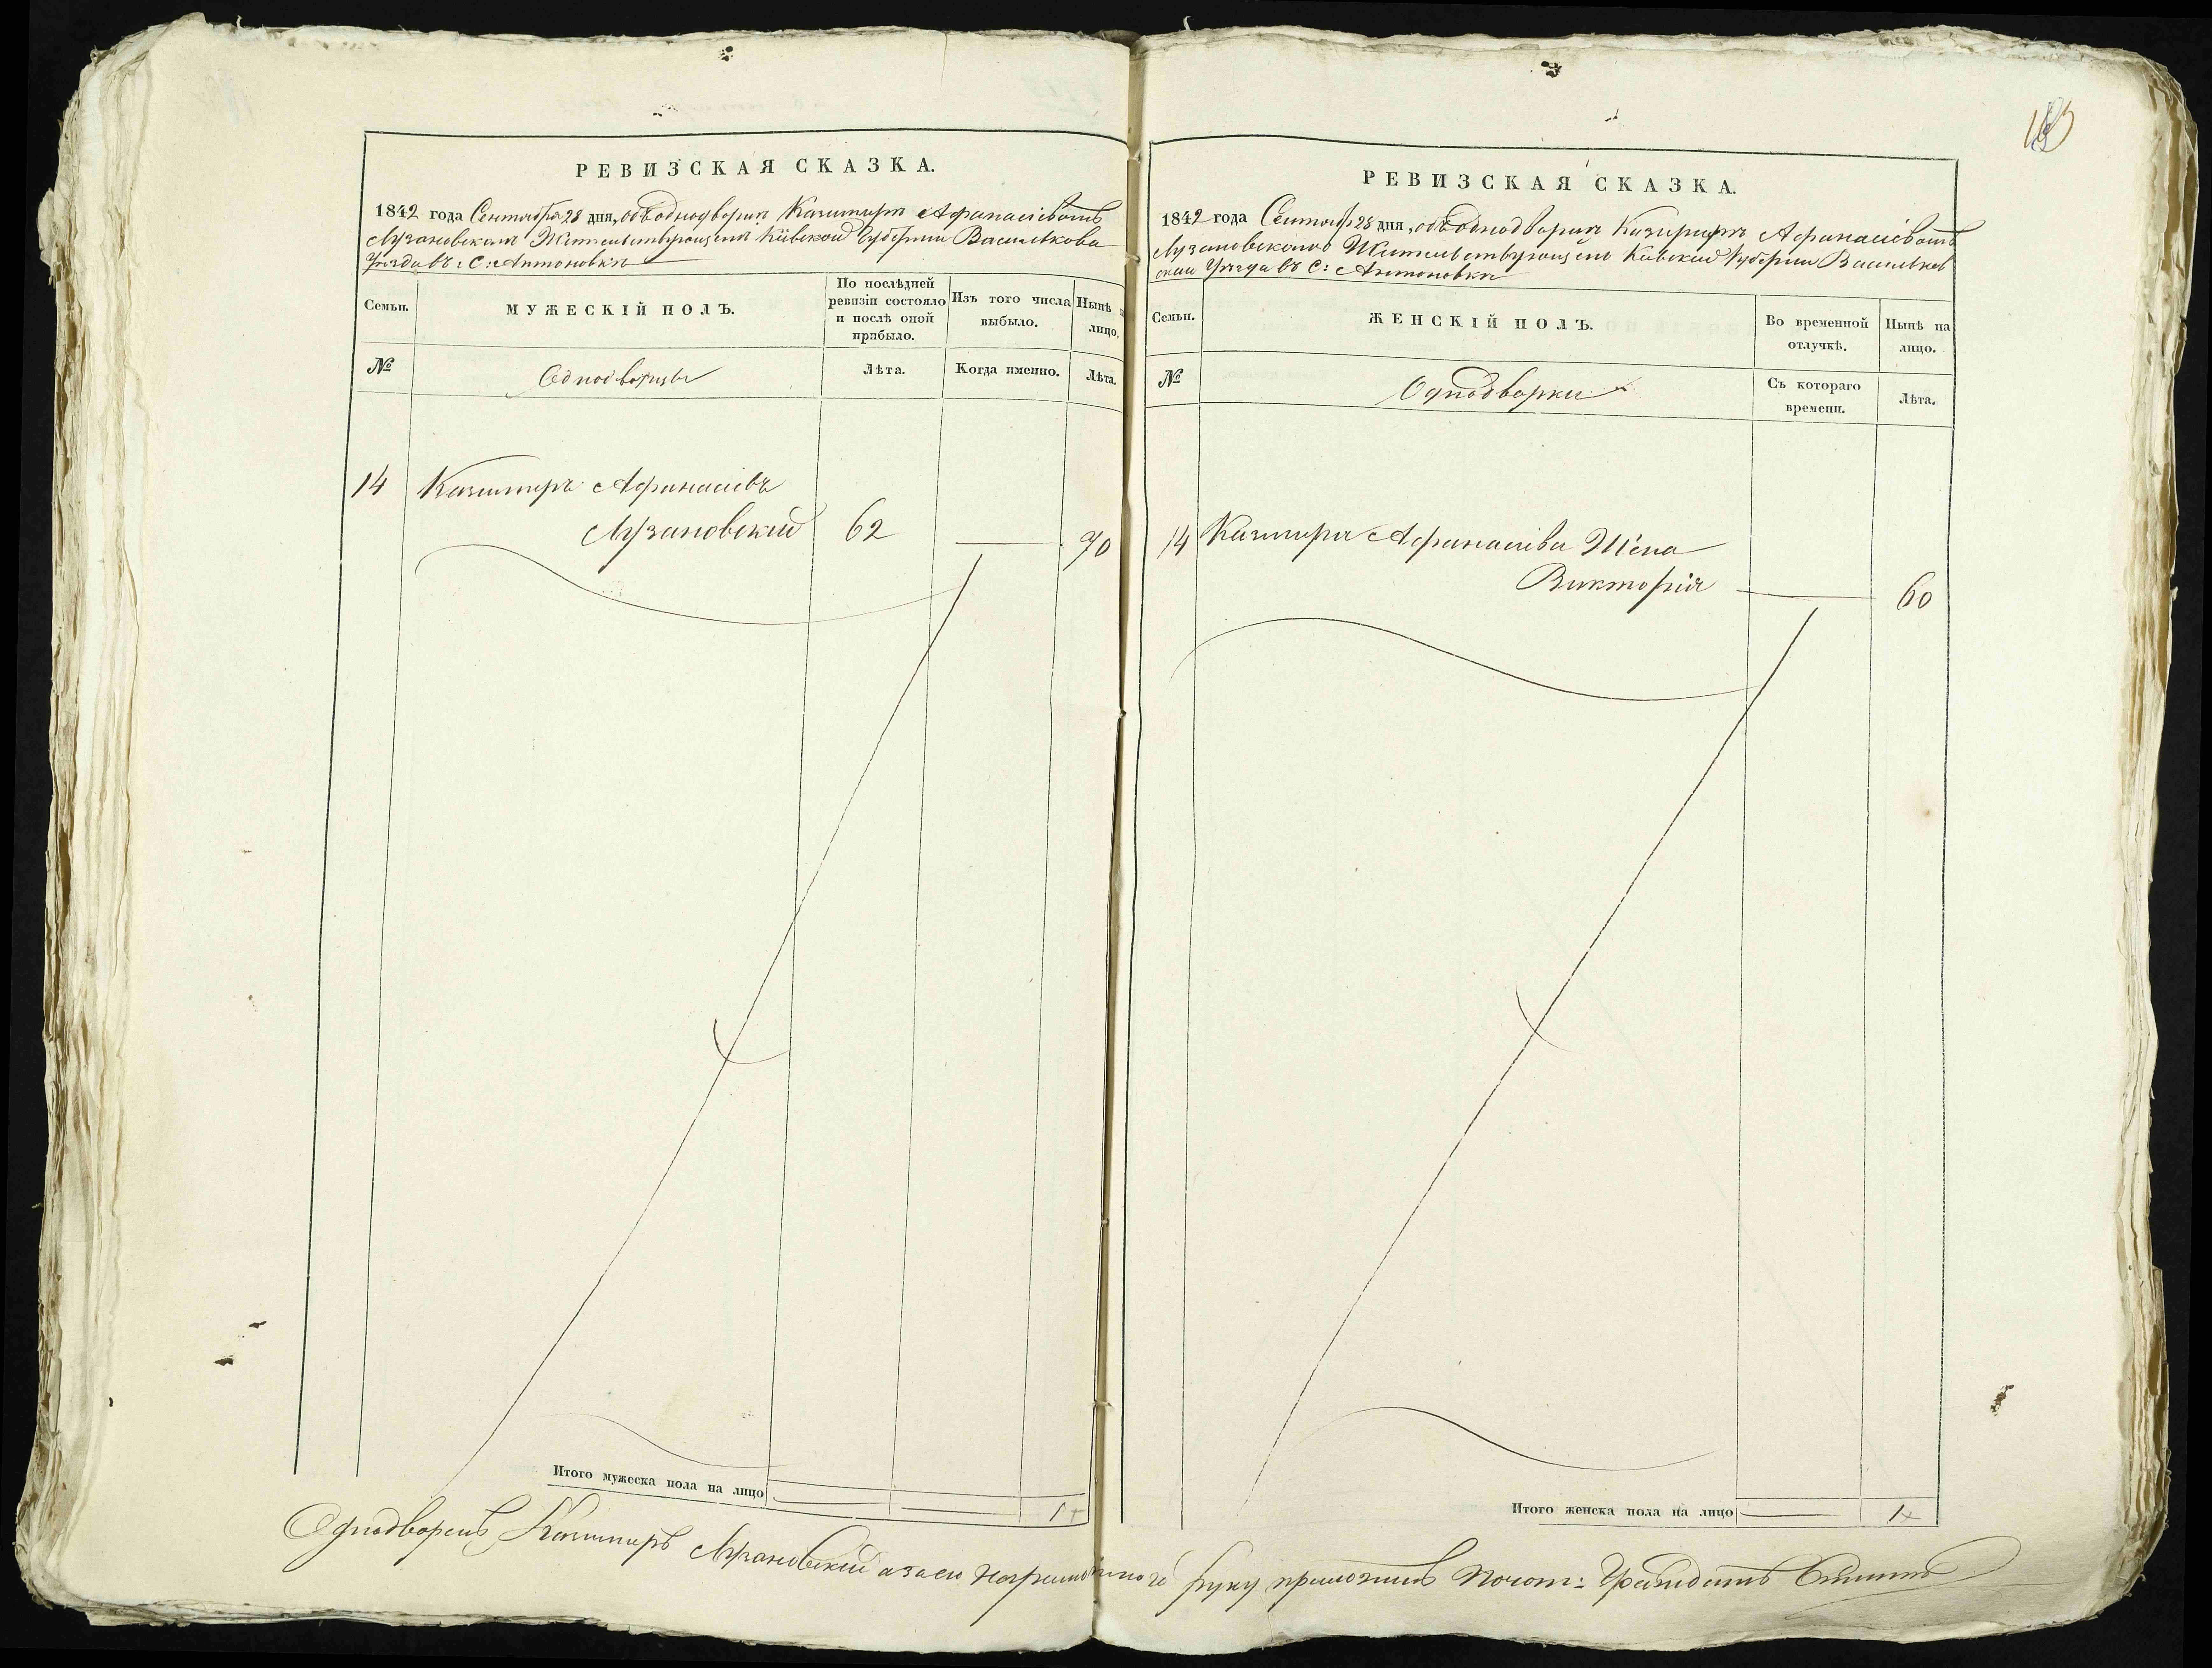 РЕВИЗСКАЯ СКАЗКА.
1842 года Сентября 28 дня, объ однодворцѣ Казимирѣ Афанасіевомъ
Лузановскомъ Жительствующемъ Кіевской Губерніи Василькова
Уѣзда въ: С: Антоновкѣ
Семьи.
МУЖЕСКІЙ ПОЛЪ.
По послѣдней ревизіи состояло и послѣ оной прибыло.
Изъ того числа выбыло.
Нынѣ н лицо.
№
Однодворцы
Лѣта.
Когда именно.
Лѣта.
14 Казимиръ Афанасіевъ
Лузановский 62 70
Итого мужеска пола на лицо 1
Однодворецъ Казимиръ Лузановский а за его неграмотного руку приложилъ Почот:
РЕВИЗСКАЯ СКАЗКА.
1842 года Сентября 28 дня, объ однодворцѣ Казимирѣ Афанасіевомъ
Лузановскомъ Жительствующемъ Кіевской Губерніи Васильков
ском Уѣзда въ С: Антоновкѣ
Семьи.
ЖЕНСКІЙ ПОЛЪ.
Во временной отлучкѣ.
Нынѣ на лицо.
№
Однодворки
Съ котораго времени.
Лѣта.
14 Казимира Афанасиева Жена
Викторія 60
Итого женска пола на лицо 1